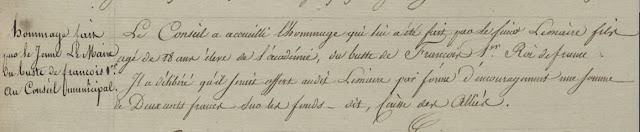 hommage fait
par le jeune Le Maire
du buste de francois 1er
au Conseil municipal.
Le Conseil a accueilli l'hommage qui lui a été fait par le sieur Lemaire fils
agé de 18 ans élève de l'académie, du buste de François 1er Roi de france.
Il a délibéré qu'il serait offert audit Lemaire par forme d'encouragement une somme
de Deux cents francs sur les fonds dit, foire des Alliés.